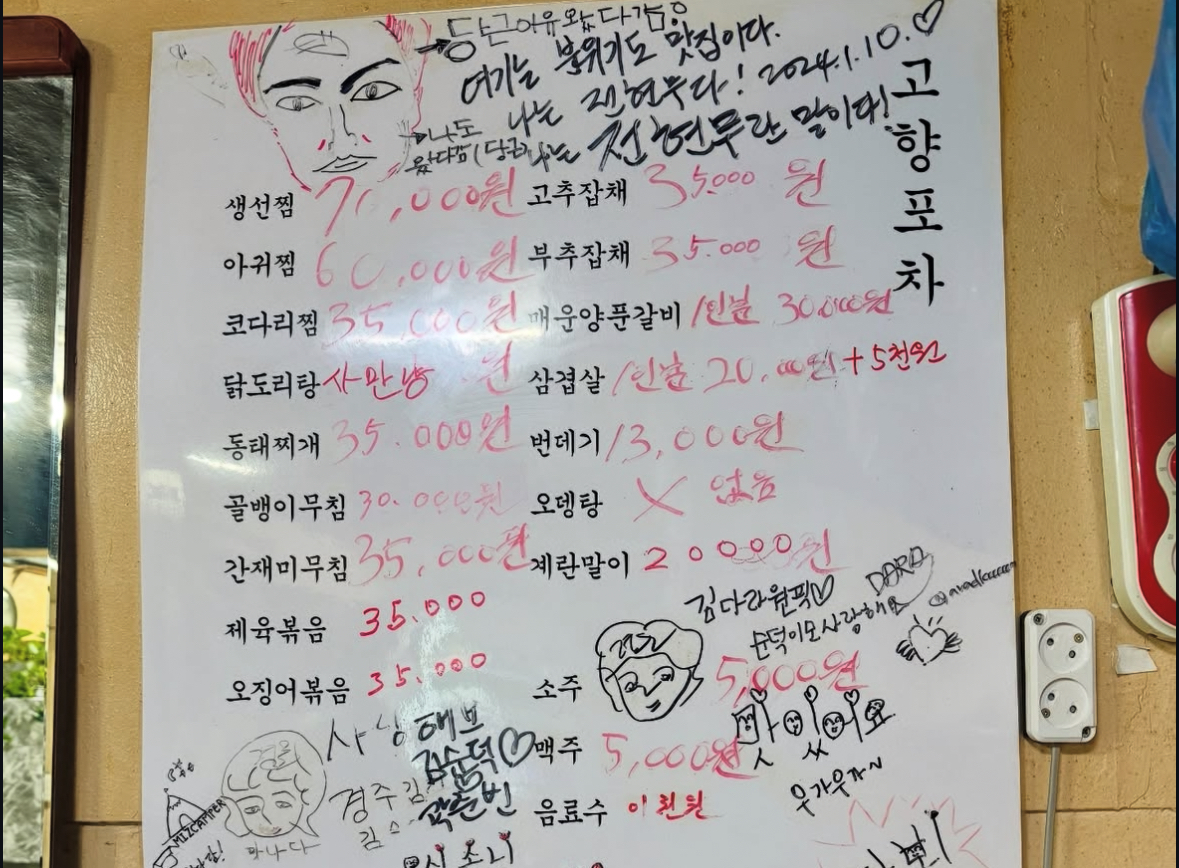 당근이유 왔다감
여기는 분위기도 맛집이다.
나는 전현무다! 2024.1.10.♡
나도 나는 전현무란 말이다!
왔다감 (당근)
고향포차
생선찜 70,000원 고추잡채 35.000 원
아귀찜 60,000원 부추잡채 35.000 원
코다리찜 35,000원 매운양푼갈비 1인분 30,000원
닭도리탕 사만냥 원 삼겹살 1인분 20,000원 + 5천원
동태찌개 35.000원 번데기 13,000원
골뱅이무침 30.000원 오뎅탕 X 없음
간재미무침 35,000원 계란말이 20000원
제육볶음 35.000
김다라원픽♡ DARA
순덕이모 사랑해요
오징어볶음 35.000
소주 5,000원
사랑해브
김순덕♡
맥주 5,000원
우가우가~
경주김
곽튜빈
음료수 이천원
MIZCAMPER